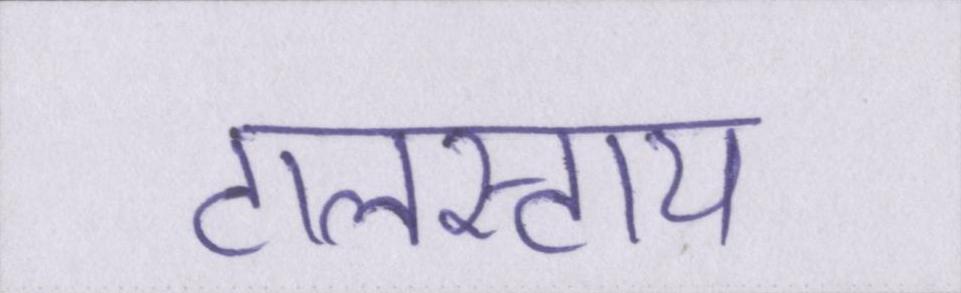 टालस्टाय